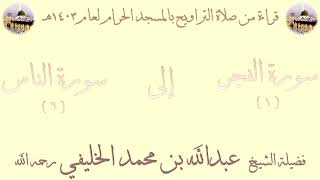 قراءة من صلاة التراويح بالمسجد الحرام لعام ١٤٠٣هـ
سورة الفجر إلى سورة الناس
(١) (٦)
فضيلة الشيخ عبدالله بن محمد الخليفي رحمه الله